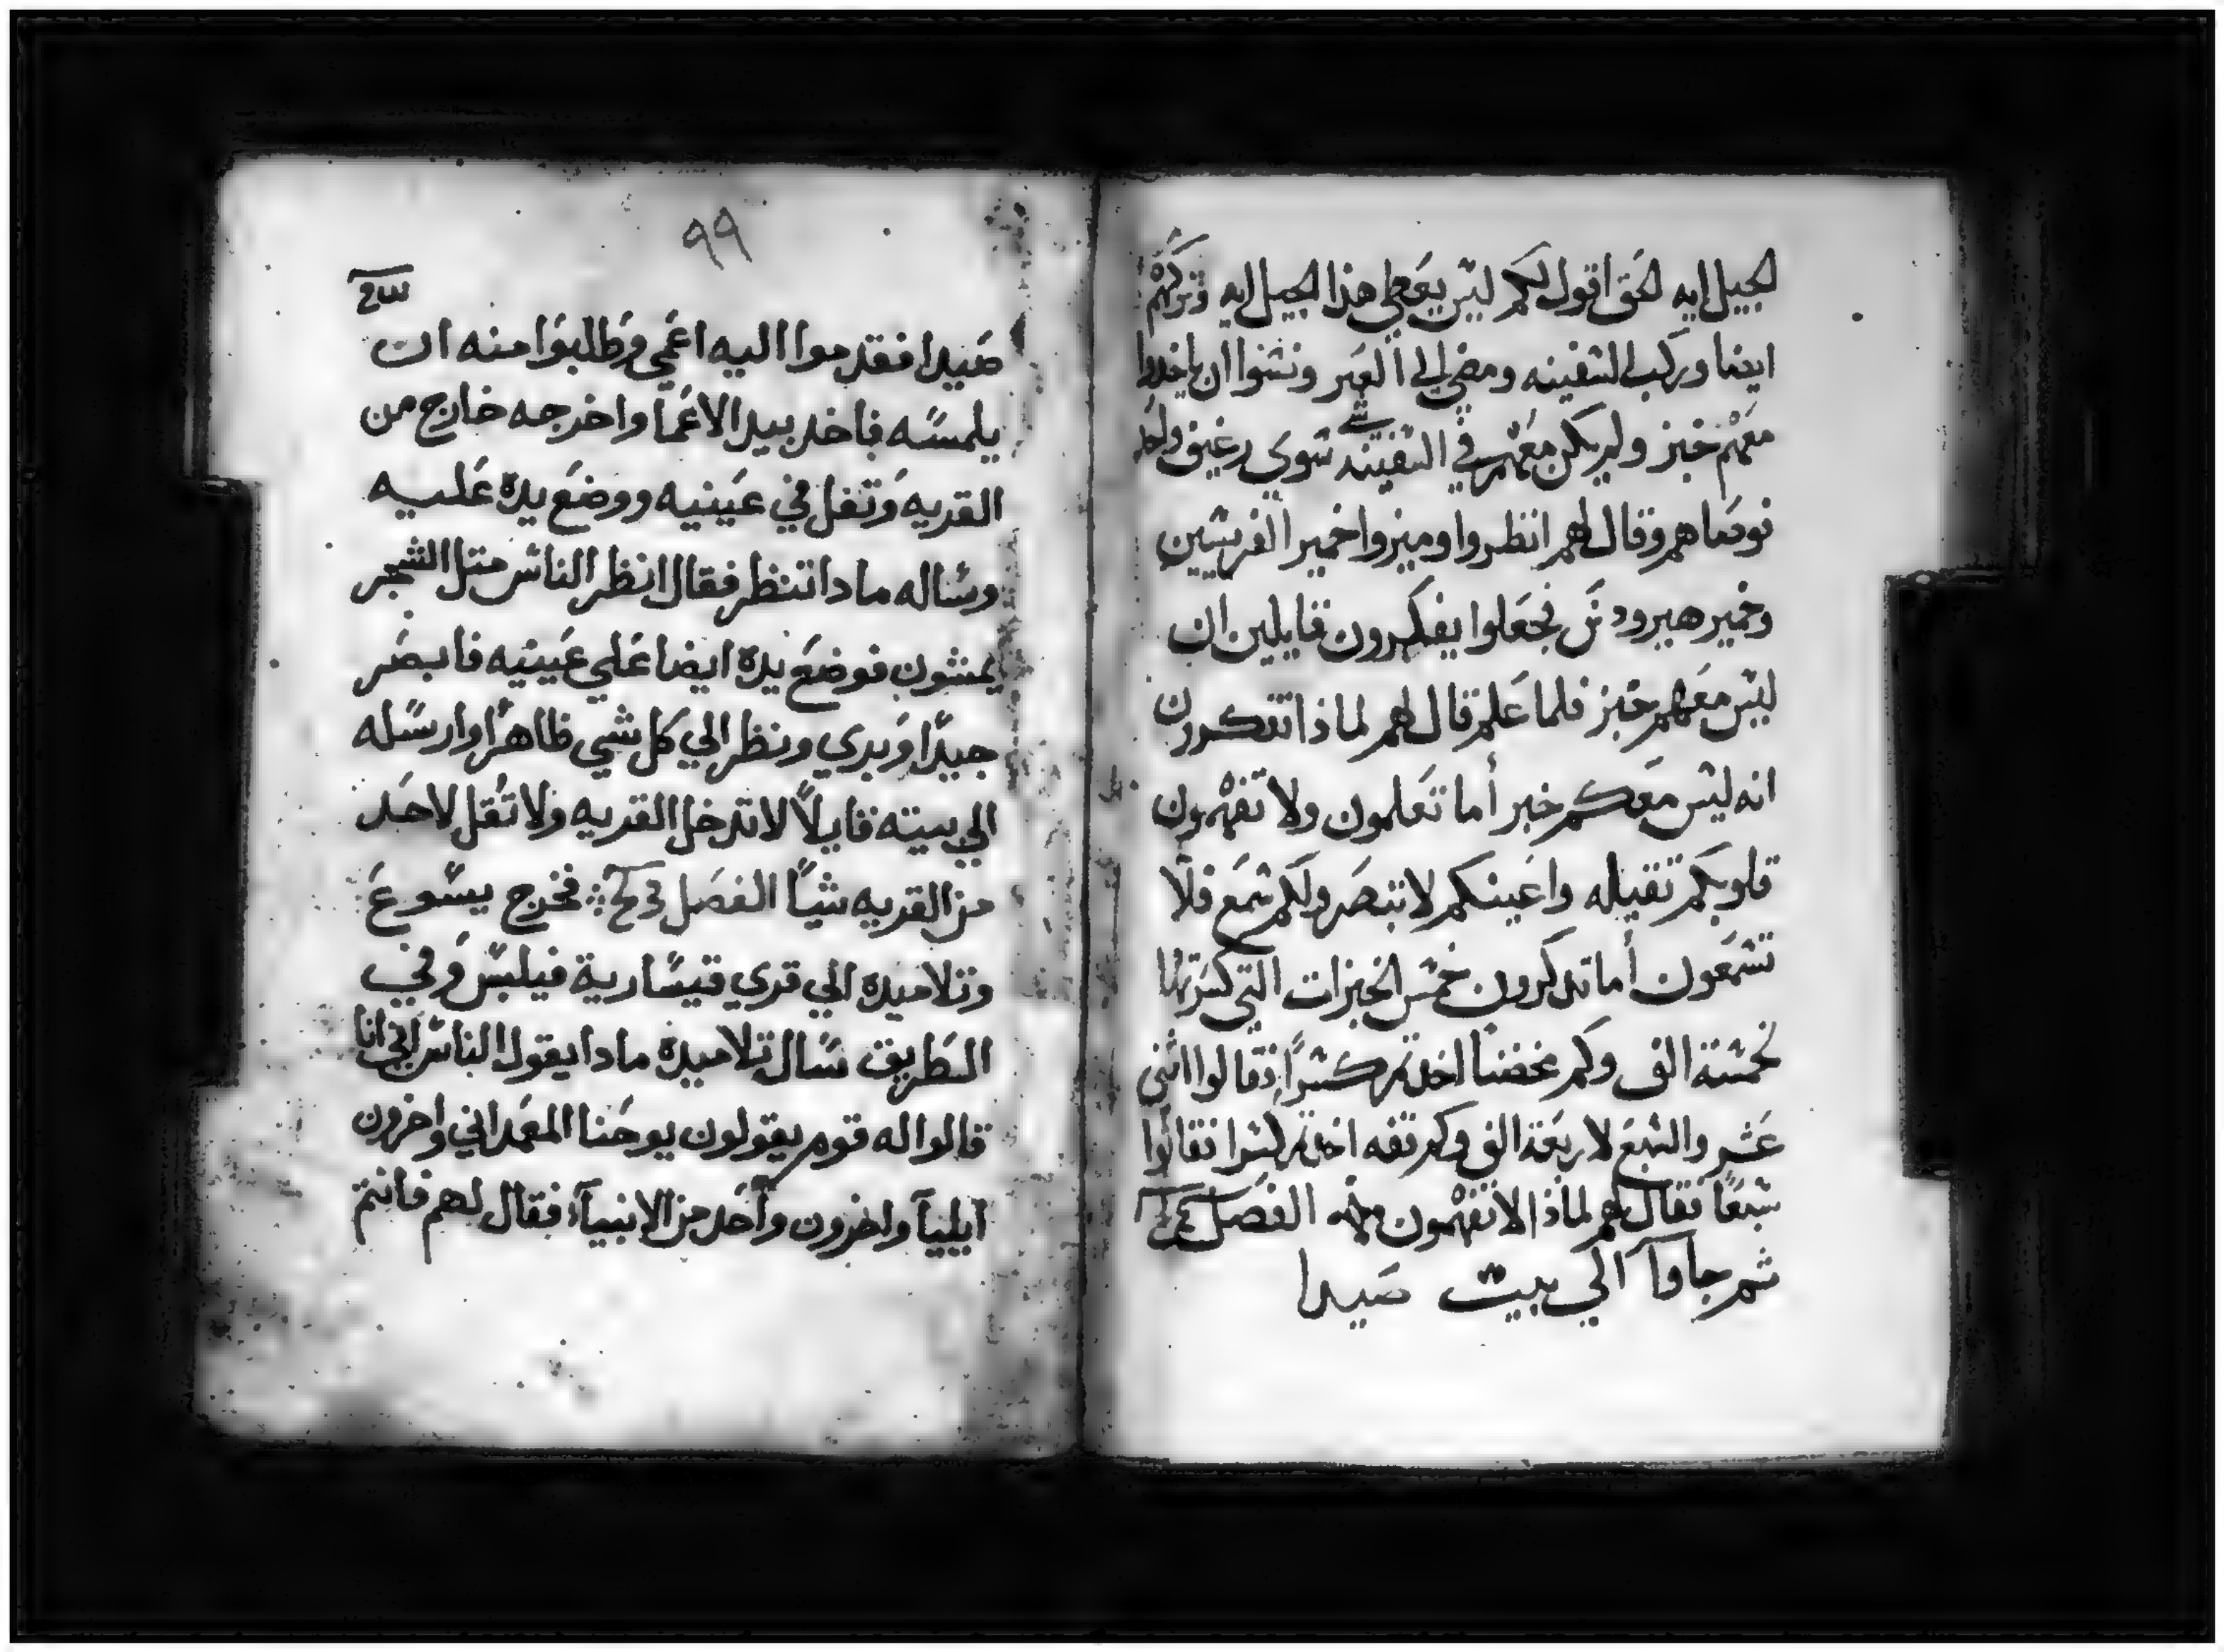 الجيل ايه الحق اقول لكم ليس يعطي هذا الجيل ايه وتركهم
ايضا وركب السفينه ومضي الي العبر ونسوا ان ياخدوا
معهم خبز ولم يكن معهم في السفينه سوي رغيف واحد
فوصاهم وقال لهم انظروا وميزوا خمير الفريسين
وخمير هيرودس فجعلوا يفكرون قايلين ان
ليس معهم خبز فلما علم قال لهم لماذا تفكرون
انه ليس معكم خبز أما تعلمون ولا تفهمون
قلوبكم تقيله واعينكم لا تبصر ولكم سمع فلا
تسمعون أما تدكرون خمس الخبزات التي كسرتها
لخمسة الف وكم اخدتم كسرًا فقالوا اثني
عشر والسبع لاربعة الف وكم قفه اخدتم كسرا فقالوا
سبعًا فقال لهم لماذا لا تفهمون الفصل
ثم جاوا الي بيت صيدا
٩٩
صيدا فقدموا اليه اعمي وطلبوا منه ان
يلمسه فاخد بيد الاعما واخرجه خارج من
القريه وتفل في عينيه ووضع يده عليه
وساله مادا تنظر فقال انظر الناس متل الشجر
يمشون فوضع يده ايضا علي عينيه فابصر
جيدًا وبري ونظر الي كل شي ظاهرًا وارسله
الي بيته قايلاً لا تدخل القريه ولا تقل لاحد
من القريه شيًا الفصل فخرج يسوع
وتلاميده الي قري قيسارية فيلبس وفي
الطريق سال تلاميده مادا يقول الناس اني انا
قالوا له قوم يقولون يوحنا المعمداني واخرون
ايليا واخرون واحد من الانبيآء فقال لهم فانتم